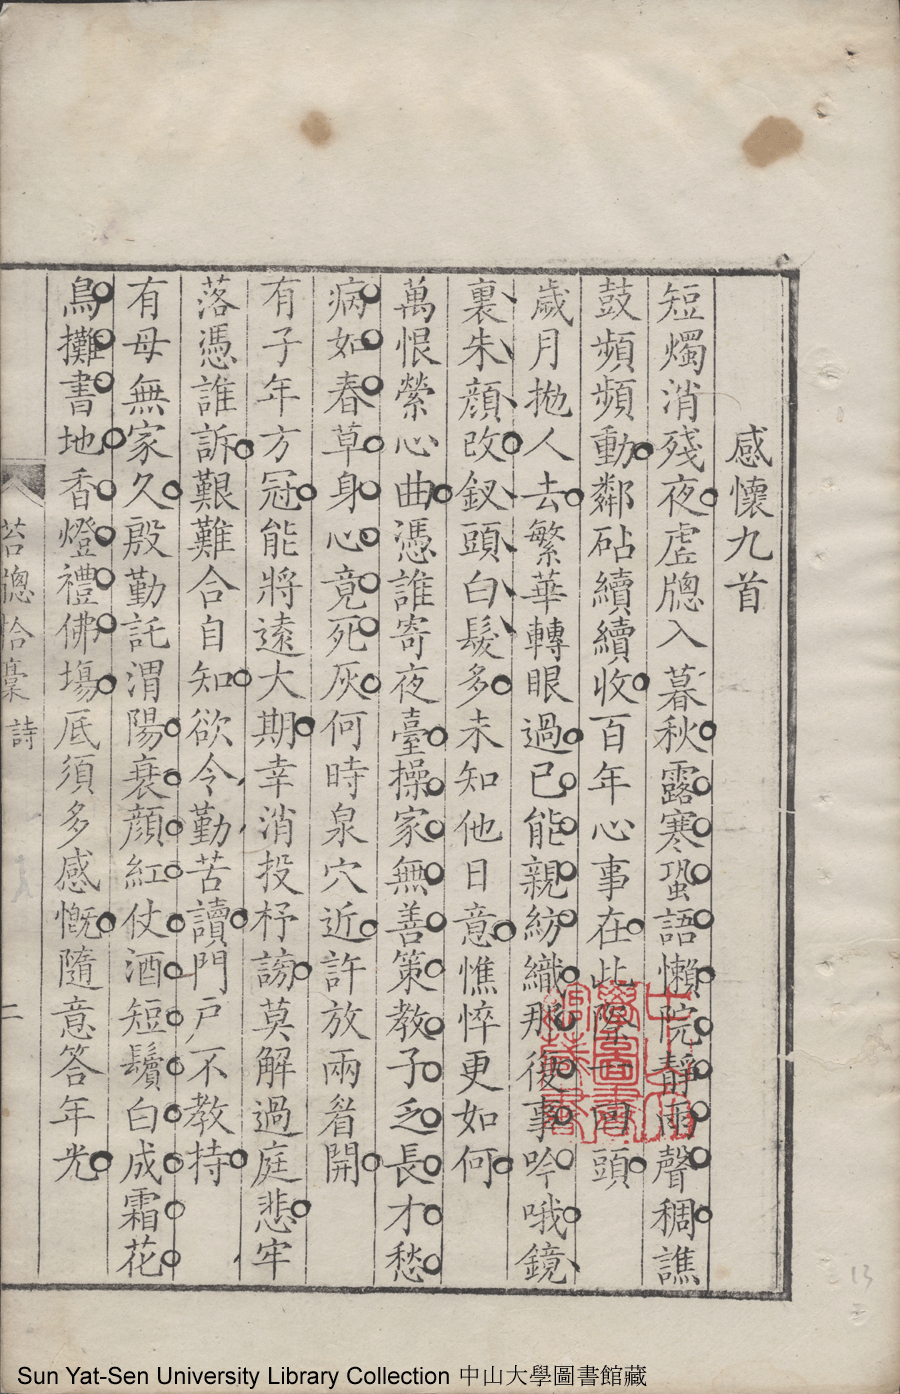 感懷九首
短燭消殘夜虛牕入暮秋露寒蛩語懶院靜雨聲稠譙
鼓頻頻動鄰砧續續收百年心事在此際一回頭
歲月拋人去繁華轉眼過已能親紡織那復事吟哦鏡
裏朱顔改釵頭白髮多未知他日意憔悴更如何
萬恨縈心曲憑誰寄夜臺操家無善策教子乏長才愁
病如春草身心竟死灰何時泉穴近許放兩眉開
有子年方冠能將遠大期幸消投杼謗莫解過庭悲牢
落憑誰訴艱難合自知欲令勤苦讀門戶不教持
有母無家久殷勤託渭陽衰顔紅仗酒短鬢白成霜花
鳥攤書地香燈禮佛場底須多感慨隨意答年光
苔牕拾稾 詩
二
中山大
學圖書
館藏書
13
Sun Yat-Sen University Library Collection 中山大學圖書館藏